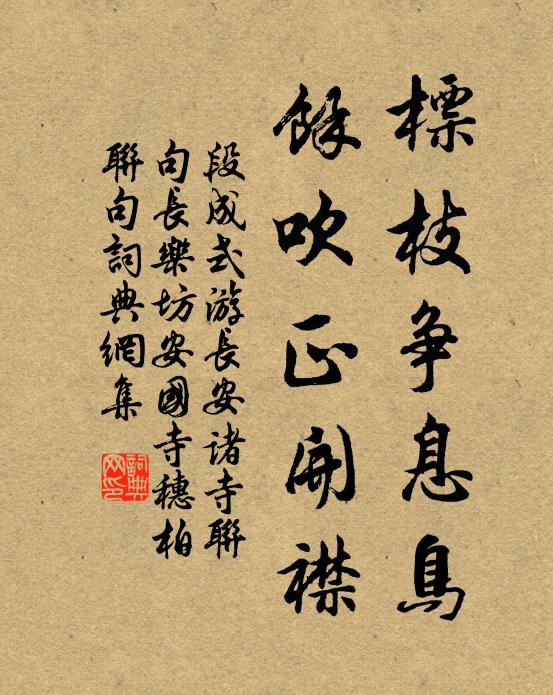 標枝争息鳥
餘吹正開襟
段成式游長安诸寺聯
句長樂坊安國寺穗柏
聯句詞典網集
詞典网印